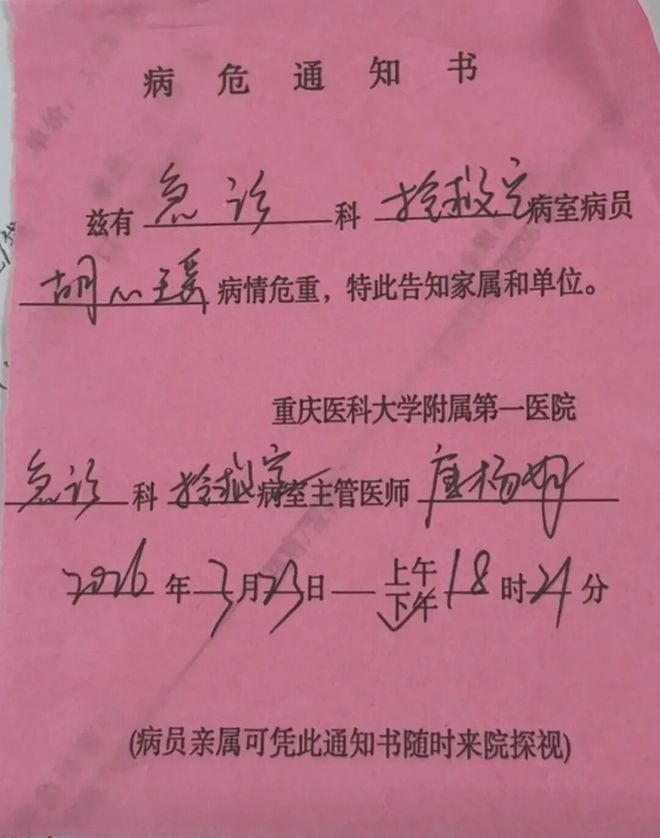 病危通知书
兹有 急诊 科 抢救室 病室病员
胡心瑗 病情危重，特此告知家属和单位。
重庆医科大学附属第一医院
急诊 科 抢救室 病室主管医师 唐杨
2026 年 3 月 23 日 — 上午
下午 18 时 21 分
(病员亲属可凭此通知书随时来院探视)